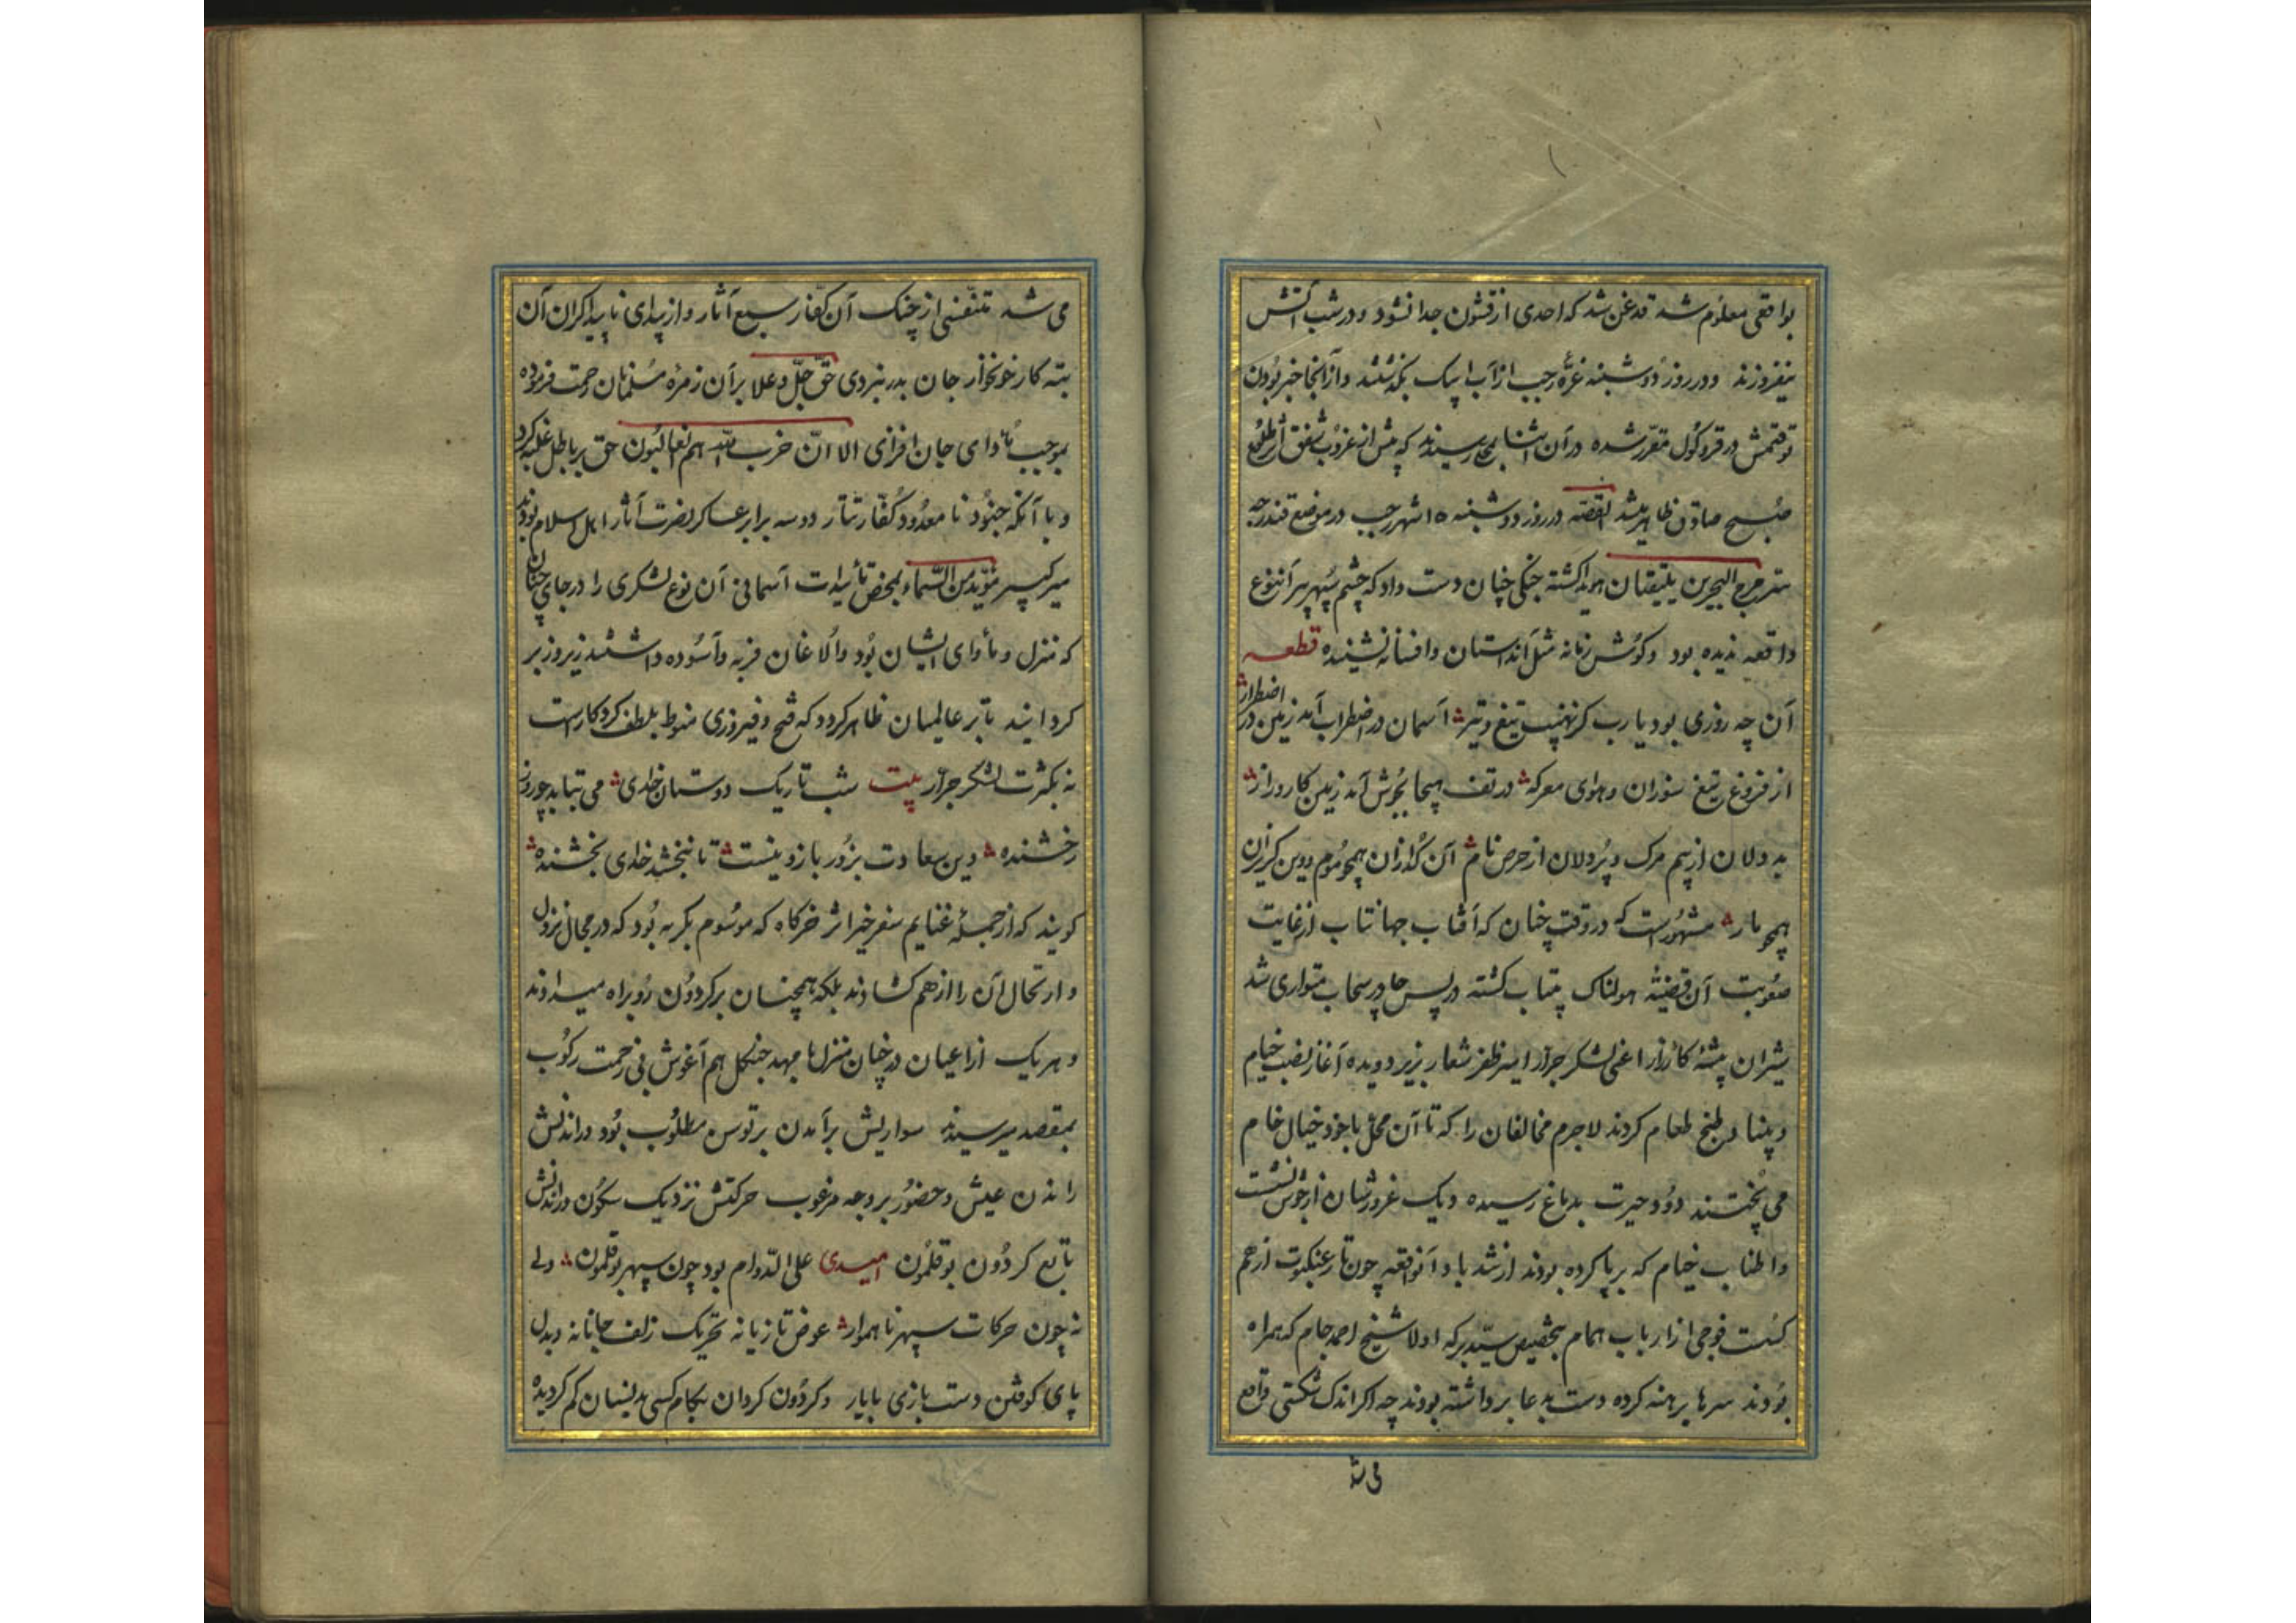 بواقعی معلوم شد قدغن شد که احدی از قشون جدا نشود و در شب آتش
نیفروزند و در روز دوشنبه غره رجب از آب ایبک بگذشتند و از آنجا خبر بودن
توقتمش در قروکول مقرر شده در آن اثنا بمحلی رسیدند که پیش از غروب شفق آثار طلوع
صبح صادق ظاهر میشد القصه در روز دوشنبه ۱۵ شهر رجب در موضع قندرجه
مرج البحرین یلتقیان هویدا کشته جنکی چنان دست داد که چشم سپهر پیر آن نوع
واقعه ندیده بود و کوش زمانه مثل آن داستان و افسانه نشینده قطعه
آن چه روزی بود یارب کز نهیب تیغ و تیر آسمان در اضطراب آمد زمین در اضطرار
از فروغ تیغ سوران و هوای معرکه در تف هیجا بجوش آمد زمین کارزار
بد دلان از بیم مرک و پردلان از حرص نام آن کدازان همچو موم و وین کزان
همچو مار مشهورست که در وقت چنان که آفتاب جهانتاب از غایت
صعوبت آن قضیه هولناک بیتاب کشته در پس چادر سحاب متواری شد
شیران بیشه کارزار اعنی لشکر جرار امیر ظفر شعار بزیر دویده آغاز نصب خیام
و بنیاد طبخ طعام کردند لاجرم مخالفان را که تا آن محل با خود خیال خام
می پختند دود حیرت بدماغ رسیده دیک غرورشان از جوش نشست
و اطناب خیام که برپا کرده بودند از شد باد آنواقعه چون تار عنکبوت از هم
کست فوجی از ارباب همام بتخصیص سید برکه اولاد شیخ احمد جام که همراه
بودند سرها برهنه کرده دست بدعا برداشته بودند چه اگر اندک شکستی واقع
می شد
می شد تنفسی از چنک آن کفار سبع آثار و از بیدای ناپیدا کران آن
بته کار خونخوار جان بدر نبردی حق جل و علا بر آن زمره مسلمانان رحمت فرموده
بموجب ادای جان افزای الا ان حزب الله هم الغالبون حق بر باطل غلبه کرد
و با آنکه جنود نامعدود کفار تتار دو سه برابر عساکر نصرت آثار اهل اسلام بودند
میر کبیر مؤید من السماء بمحض تأییدات آسمانی آن نوع لشکری را در جای چنان
که منزل و مأوای ایشان بود و الاغان فربه و آسوده داشتند زیر و زبر
کردانید تا بر عالمیان ظاهر کردد که فتح و فیروزی منوط بلطف کردکارست
نه بکثرت لشکر جرار بیت شب تاریک دوستان خدای می بتابد چو روز
رخشنده وین سعادت بزور بازو نیست تا نبخشد خدای بخشنده
کویند که از جمله غنایم سفر خیر اثر خرکاه که موسوم بکریه بود که در محال نزول
و ارتحال آن را از هم کشادند بلکه همچنان بر کردون رو براه میدادند
و هر یک از اعیان در چنان منزل با مهد جنکل هم آغوش فی زحمت رکوب
بمقصد میرسیدند سواریش برآمدن بر توسن مطلوب بود و راندنش
راندن عیش و حضور بر وجه مرغوب حرکتش نزدیک سکون و راندنش
تابع کردون بوقلمون امیدی علی الدوام بود چون سپهر بوقلمون ولی
نه چون حرکات سپهر ناهموار عوض تازیانه تحریک زلف جانانه و بدل
پای کوفتن دست بازی با یار و کردون کردان بکام کسی بدینسان کم کردیده